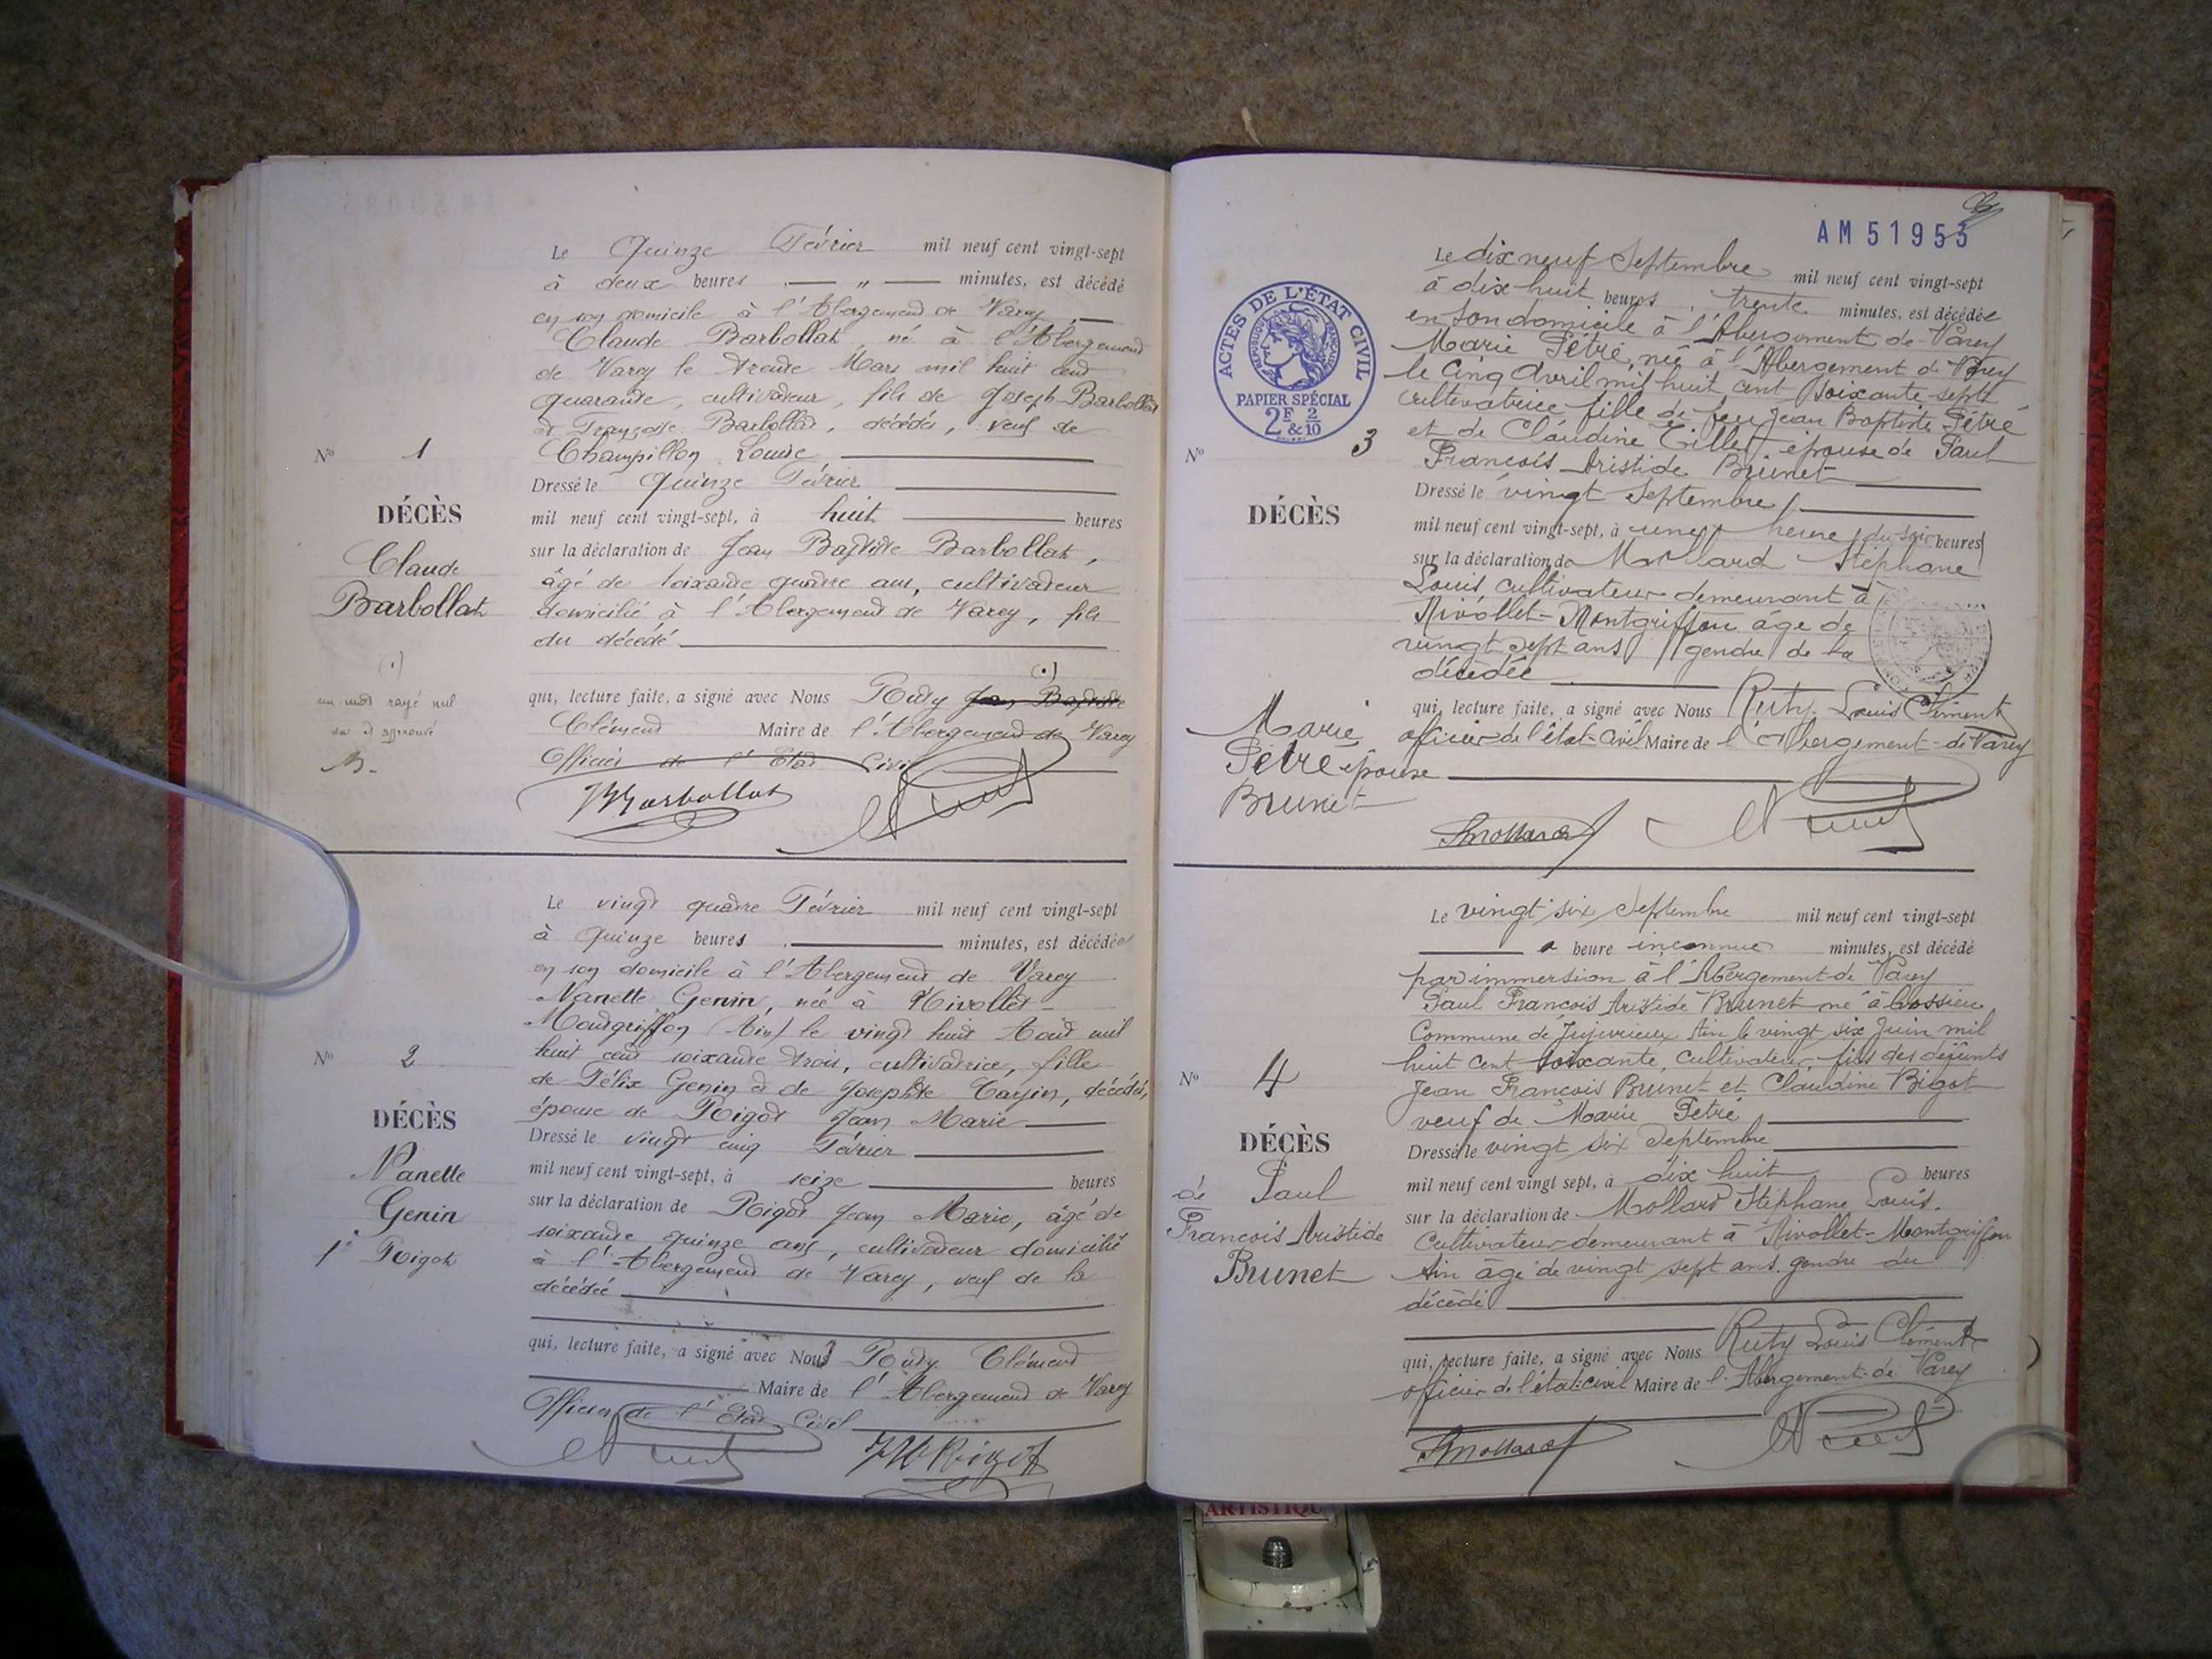 Le Quinze Février mil neuf cent vingt-sept
à deux heures — " — minutes, est décédé
en son domicile à l'Abergement de Varey
Claude Barbollat, né à l'Abergement
de Varey le trente Mars mil huit cent
quarante, cultivateur, fils de Joseph Barbollat
et Françoise Barbollat, décédés, veuf de
Champillon Louise
Dressé le Quinze Février
mil neuf cent vingt-sept, à huit heures
sur la déclaration de Jean Baptiste Barbollat,
âgé de soixante quatre ans, cultivateur
domicilié à l'Abergement de Varey, fils
du décédé
(.)
qui, lecture faite, a signé avec Nous Ruty Jean Baptiste
Clément Maire de l'Abergement de Varey
Officier de l'Etat Civil
JBBarbollat
No 1
DÉCÈS
Claude
Barbollat
(.)
un mot rayé nul
lu et approuvé
Le vingt quatre Février mil neuf cent vingt-sept
à Quinze heures minutes, est décédée
en son domicile à l'Abergement de Varey
Nanette Genin, née à Nivollet-
Montgriffon (Ain) le vingt huit Août mil
huit cent soixante trois, cultivatrice, fille
de Félix Genin et de Josephte, décédés,
épouse de Rigot Jean Marie
Dressé le vingt cinq Février
mil neuf cent vingt-sept, à seize heures
sur la déclaration de Rigot Jean Marie, âgé de
soixante quinze ans, cultivateur domicilié
à l'Abergement de Varey, veuf de la
décédée
qui, lecture faite, a signé avec Nous Ruty Clément
Maire de l'Abergement de Varey
Officier de l'Etat Civil
JM Rigot
No 2
DÉCÈS
Nanette
Genin
fe Rigot
AM 51953
Le dix neuf Septembre mil neuf cent vingt-sept
à dix huit heures, trente minutes, est décédée
en son domicile à l'Abergement de Varey
Marie Pétré, née à l'Abergement de Varey
le Cinq Avril mil huit cent soixante sept
cultivatrice fille de feu Jean Baptiste Pétré
et de Claudine Tillet épouse de Paul
François Aristide Brunet
Dressé le vingt Septembre
mil neuf cent vingt-sept, à une heure du soir heures
sur la déclaration de Mollard Stéphane
Louis, cultivateur demeurant à
Nivollet-Montgriffon âgé de
vingt sept ans gendre de la
décédée
qui, lecture faite, a signé avec Nous Ruty Louis Clément
officier de l'état-civil Maire de l'Abergement-de-Varey
Smollard
ACTES DE L'ÉTAT CIVIL
RÉPUBLIQUE FRANÇAISE
PAPIER SPÉCIAL
2F & 2/10
No 3
DÉCÈS
Marie
Pétré épouse
Brunet
Le vingt six Septembre mil neuf cent vingt-sept
à heure inconnue minutes, est décédé
par immersion à l'Abergement de Varey
Paul François Aristide Brunet né à Cossieu
Commune de Jujurieux Ain le vingt six Juin mil
huit cent soixante, cultivateur, fils des défunts
Jean François Brunet et Claudine Bigot
veuf de Marie Pétré
Dressé le vingt six Septembre
mil neuf cent vingt sept, à dix huit heures
sur la déclaration de Mollard Stéphane Louis.
Cultivateur demeurant à Nivollet-Montgriffon
Ain âgé de vingt sept ans. gendre du
décédé
qui, lecture faite, a signé avec Nous Ruty Louis Clément
officier de l'état-civil Maire de l'Abergement-de-Varey
Smollard
No 4
DÉCÈS
de Paul
François Aristide
Brunet
ARTISTIQU